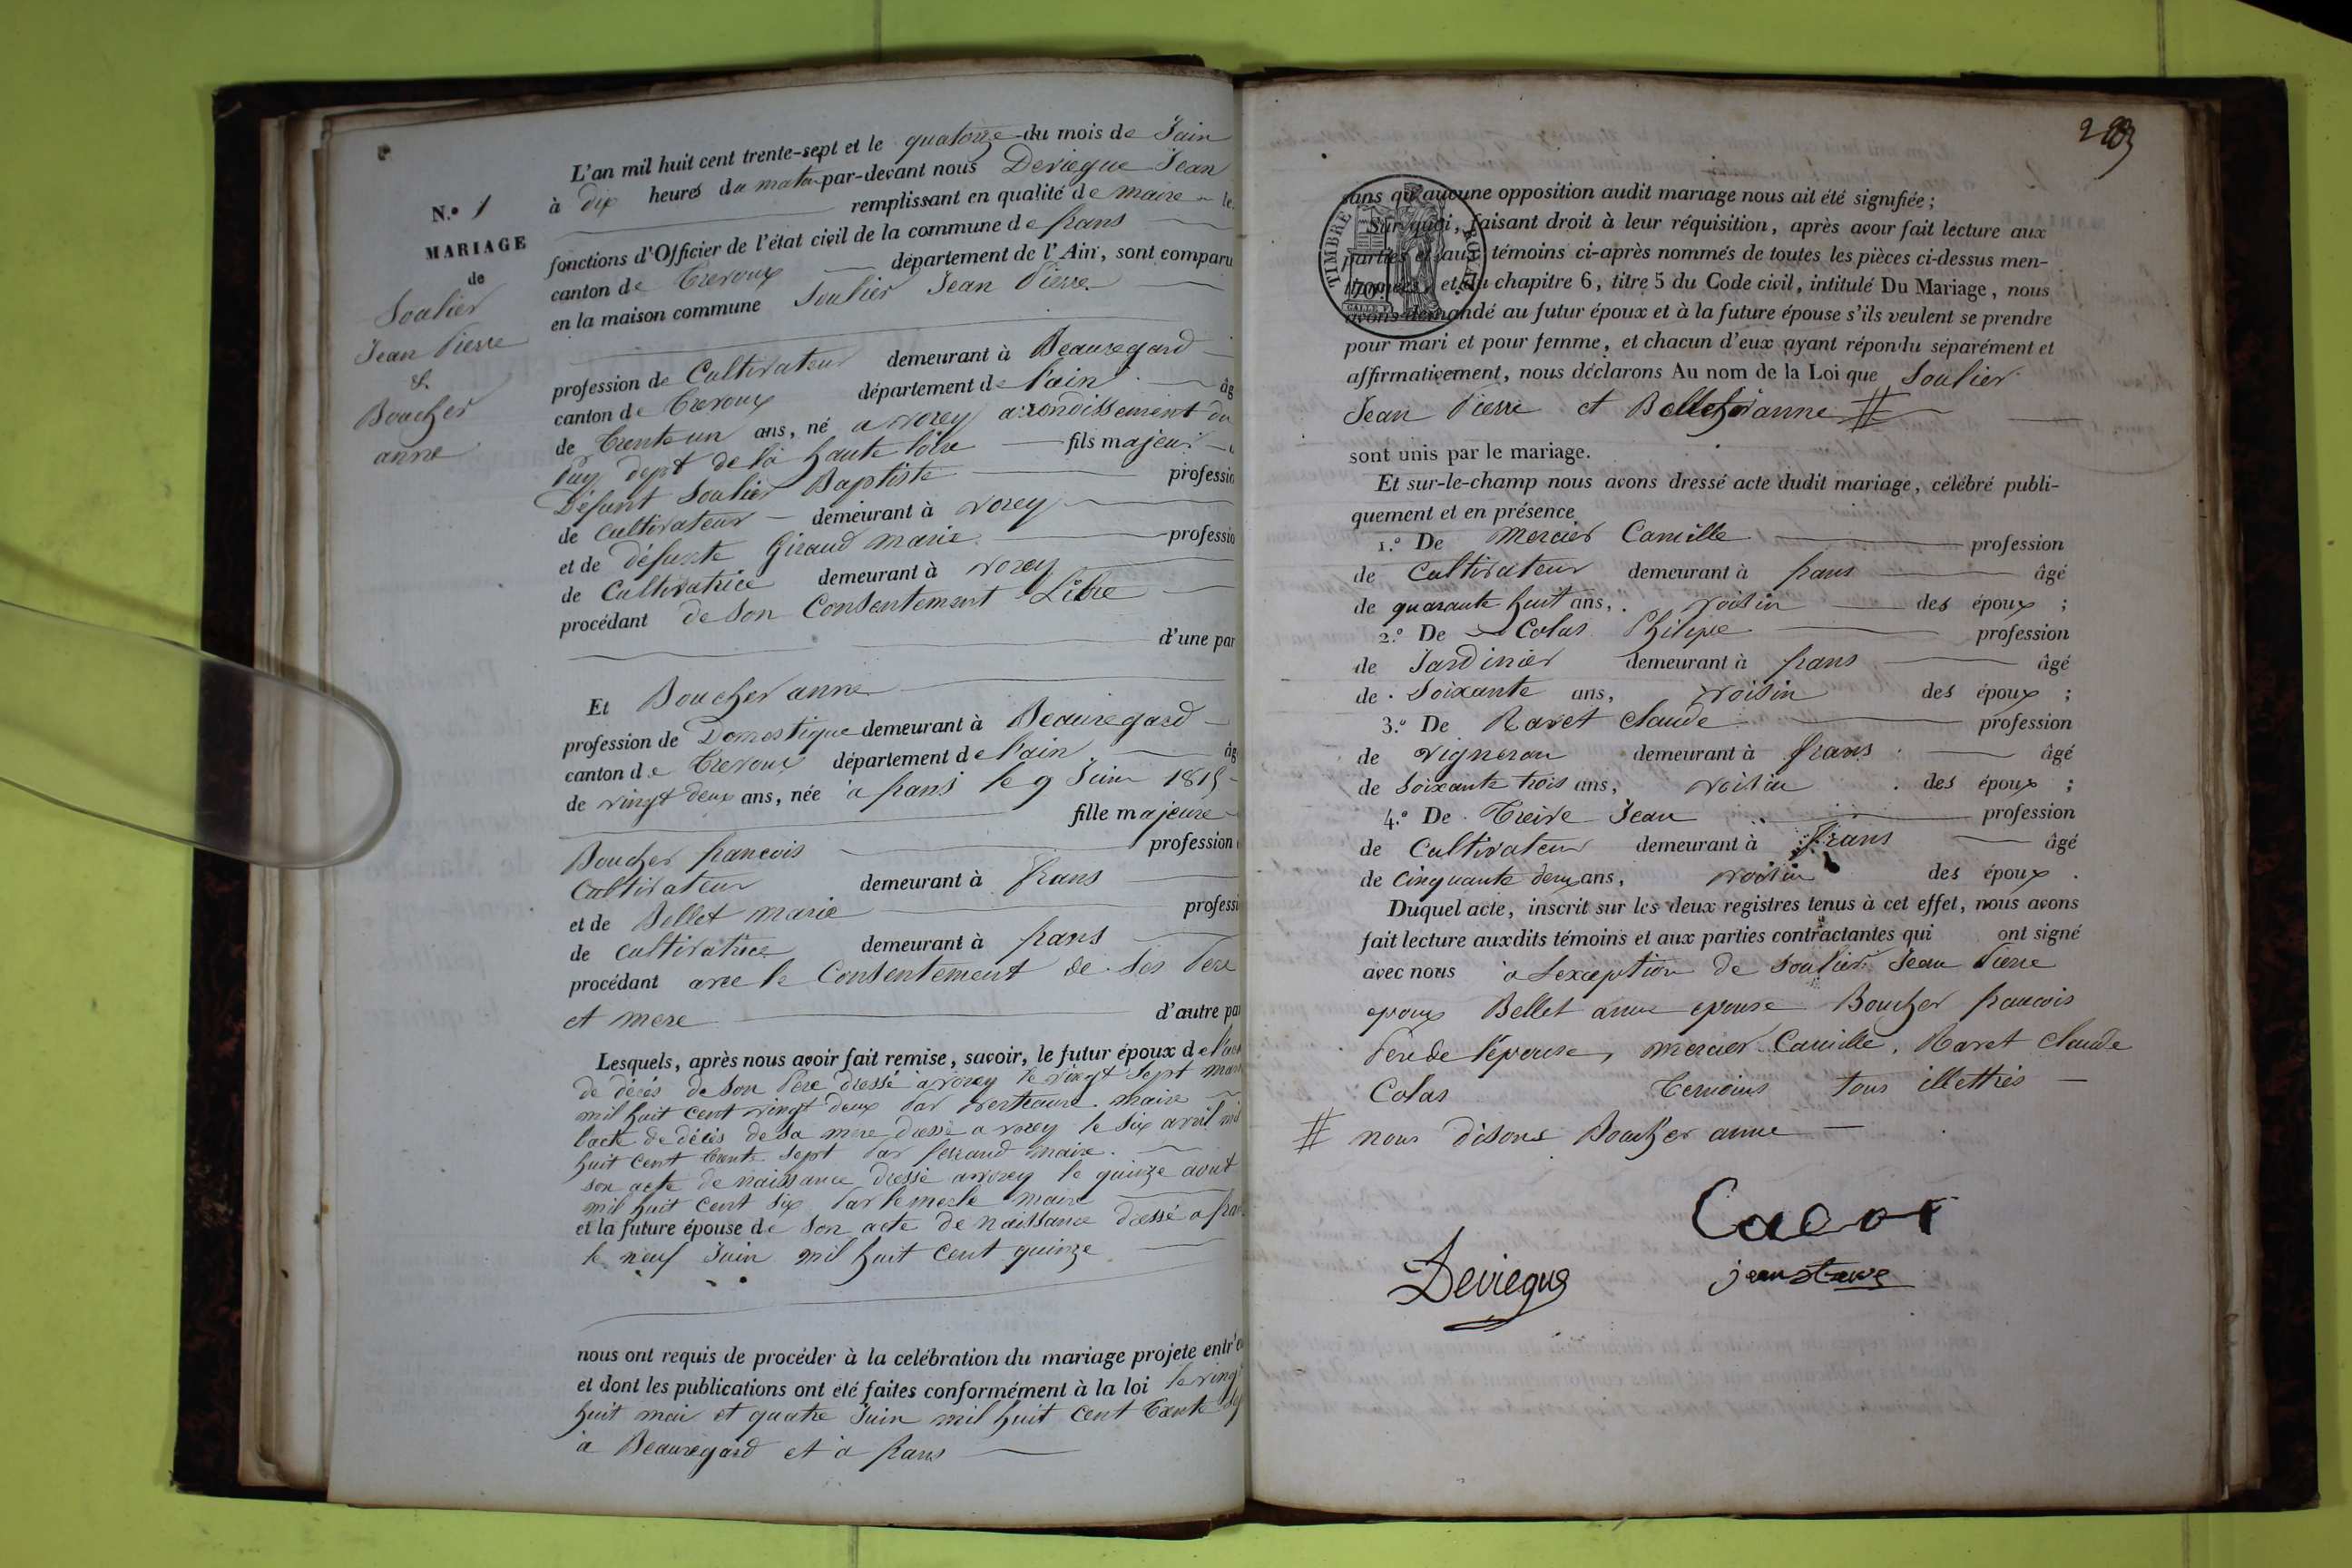 N.° 1
MARIAGE
de
Soulier
Jean Pierre
&
Boucher
anne
L'an mil huit cent trente-sept et le quatorze du mois de Juin
à dix heures du matin par-devant nous Deviegue Jean
remplissant en qualité de maire les
fonctions d'Officier de l'état civil de la commune de frans
canton de Trevoux département de l'Ain, sont comparu
en la maison commune Soulier Jean Pierre
profession de Cultivateur demeurant à Beauregard
canton de Trevoux département de l'ain âg
de Trente un ans, né a vorey arrondissement du
Puy dept de la haute loire fils majeur
Défunt Soulier Baptiste professio
de Cultivateur demeurant à vorey
et de défunte Giraud marie professio
de Cultivatrice demeurant à vorey
procédant de son Consentement Libre
d'une par
Et Boucher anne
profession de Domestique demeurant à Beauregard
canton de Trevoux département de l'ain âg
de vingt deux ans, née à frans le 9 Juin 1815
fille majeure
Boucher francois profession
Cultivateur demeurant à frans
et de Bellet marie professi
de Cultivatrice demeurant à frans
procédant avec le Consentement de ses Pere
et mere d'autre par
Lesquels, après nous avoir fait remise, savoir, le futur époux de l'acte
de décés de son Père dressé a vorey le vingt sept mars
mil huit cent vingt deux par maire
l'acte de décés de sa mère dressé a vorey le six avril mil
huit cent trente sept par ferrand maire
son acte de naissance dressé a vorey le quinze aout
mil huit cent six par maire
et la future épouse de son acte de naissance dressé a fran
le neuf Juin mil huit cent quinze
nous ont requis de procéder à la celébration du mariage projete entr'e
et dont les publications ont été faites conformément à la loi le vingt
huit mai et quatre Juin mil huit cent trente sept
a Beauregard et à frans
203
TIMBRE ROYAL
70
sans qu'aucune opposition audit mariage nous ait été signifiée;
Sur quoi, faisant droit à leur réquisition, après avoir fait lecture aux
parties et aux témoins ci-après nommés de toutes les pièces ci-dessus men-
tionnées, et du chapitre 6, titre 5 du Code civil, intitulé Du Mariage, nous
avons demandé au futur époux et à la future épouse s'ils veulent se prendre
pour mari et pour femme, et chacun d'eux ayant répondu séparément et
affirmativement, nous déclarons Au nom de la Loi que Soulier
Jean Pierre et Bellet anne #
sont unis par le mariage.
Et sur-le-champ nous avons dressé acte dudit mariage, célébré publi-
quement et en présence
1.° De Mercier Camille profession
de Cultivateur demeurant à frans âgé
de quarante huit ans, voisin des époux;
2.° De Colas Philipe profession
de Jardinier demeurant à frans âgé
de Soixante ans, voisin des époux;
3.° De Ravet claude profession
de vigneron demeurant à frans âgé
de soixante trois ans, voisin des époux;
4.° De Treive Jean profession
de Cultivateur demeurant à frans âgé
de Cinquante deux ans, voisin des époux.
Duquel acte, inscrit sur les deux registres tenus à cet effet, nous avons
fait lecture auxdits témoins et aux parties contractantes qui ont signé
avec nous a Lexception de soulier Jean Pierre
epoux Bellet anne epouse Boucher francois
Pere de l'épouse, mercier Camille, Ravet claude
Colas Temoins tous illettrés
# nous disons Boucher anne
Deviegue